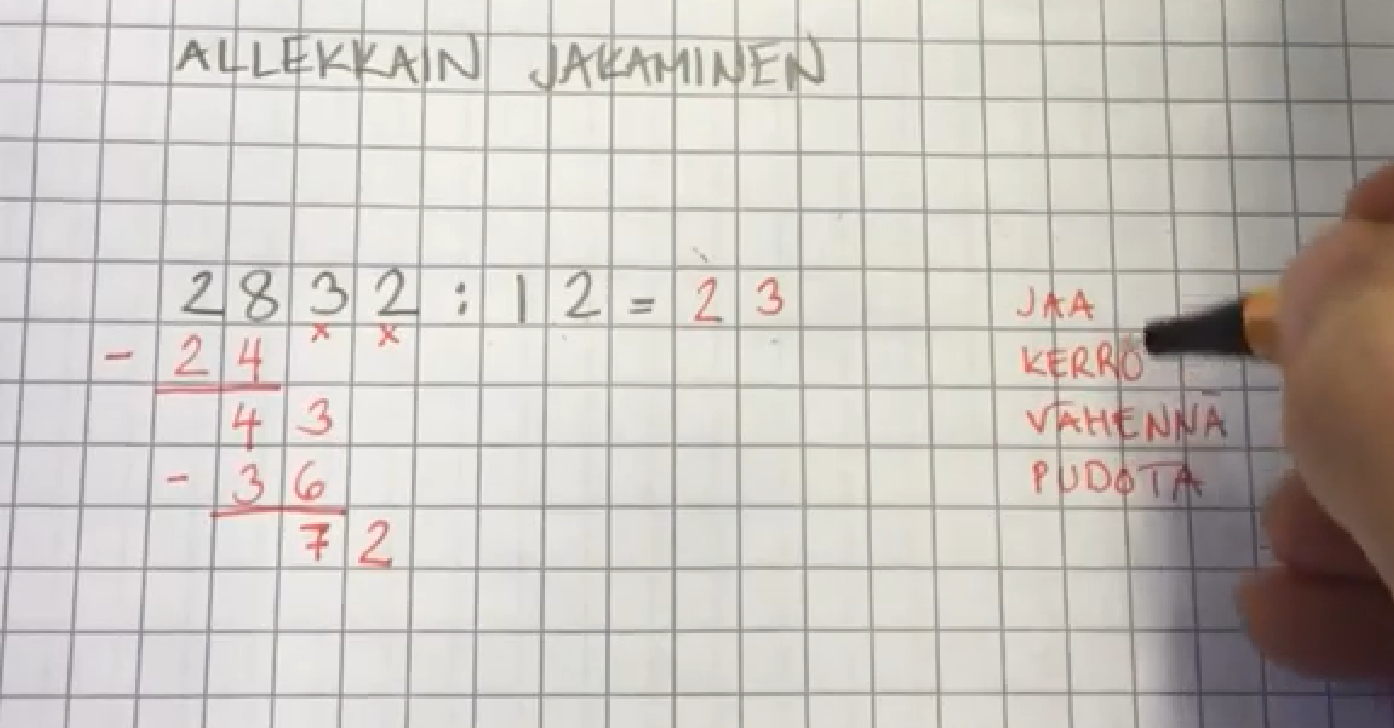 ALLEKKAIN JAKAMINEN
2832 : 12 = 23
x x
- 24
43
- 36
72
JAA
KERRO
VÄHENNÄ
PUDOTA